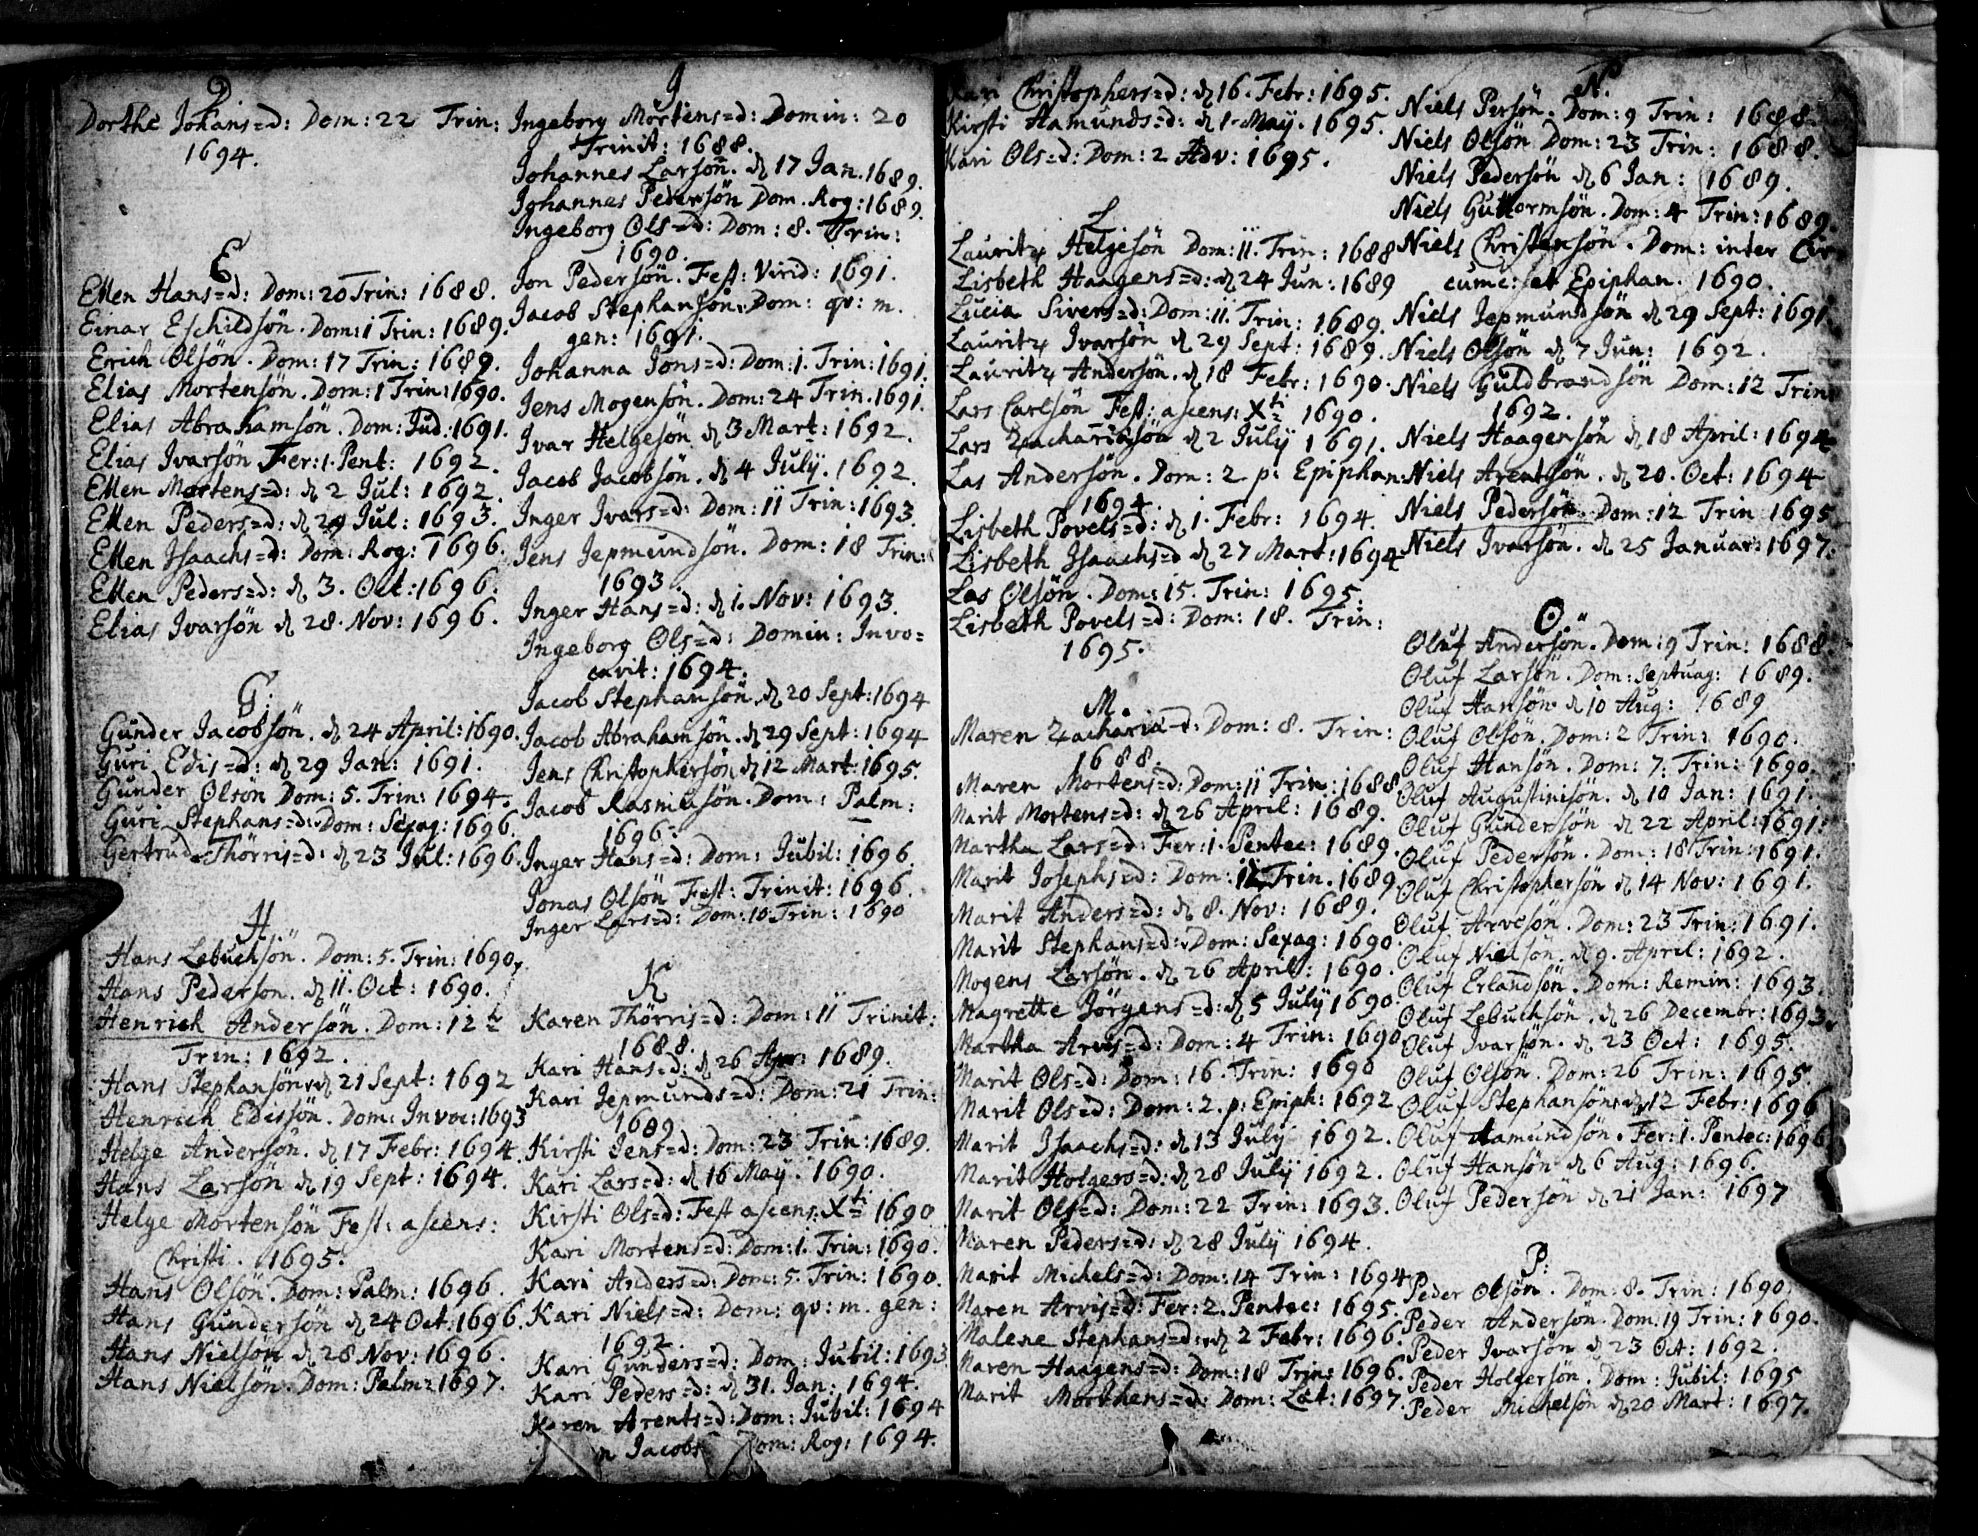 D
Dorthe Johans=d: Dom: 22 Trin:
1694.
E
Ellen Hans=d: Dom: 20 Trin: 1688.
Einar Eschildsön. Dom: 1 Trin: 1689.
Erich Olsön. Dom: 17 Trin: 1689.
Elias Mortensön. Dom: 1 Trin: 1690.
Elias Abrahamsön. Dom: Jud: 1691.
Elias Ivarsön Fer: 1. Pent: 1692.
Ellen Mortens=d: d 2 Jul: 1692.
Ellen Peders=d: d 29 Jul: 1693.
Ellen Isaachs=d: Dom: Rog: 1696.
Ellen Peders=d: d 3. Oct: 1696.
Elias Ivarsön d 28. Nov: 1696.
G:
Gunder Jacobsön. d 24 April: 1690.
Guri Edis=d: d 29 Jan: 1691.
Gunder Olsön Dom: 5. Trin: 1694.
Guri Stephans=d: Dom: Sexag: 1696.
Gertrud Thörris=d: d 23 Jul: 1696.
H
Hans Lebuchsön. Dom: 5. Trin: 1690.
Hans Pederson. d 11. Oct: 1690.
Henrich Andersön. Dom: 12
Trin: 1692.
Hans Stephansön d 21 Sept: 1692
Henrich Edissön. Dom: Invoc: 1693
Helge Andersön. d 17 Febr: 1694.
Hans Larsön d 19 Sept: 1694.
Helge Mortensön Fest: ascens:
Christi. 1695.
Hans Olsön. Dom: Palm: 1696.
Hans Gundersön d 24 Oct: 1696.
Hans Nielsön d 28 Nov: 1696.
Hans Nielson. Dom: Palm: 1697.
J
Ingeborg Mortens=d: Domin: 20
Trinit: 1688.
Johannes Larsön. d 17 Jan. 1689.
Johannes Pedersön Dom. Rog: 1689.
Ingeborg Ols=d: Dom: 8. Trin:
1690.
Jon Pedersön. Fest: Virid: 1691.
Jacob Stephansön. Dom: qv: m.
gen: 1691.
Johanna Jons=d: Dom: 1. Trin: 1691.
Jens Mogensön. Dom: 24 Trin. 1691.
Ivar Helgesön d 3 Mart: 1692.
Jacob Jacobsön. d 4 July. 1692.
Inger Ivars=d: Dom: 11 Trin: 1693.
Jens Jepmundsön. Dom: 18 Trin:
1693.
Inger Hans=d: d 1. Nov: 1693.
Ingeborg Ols=d: Domin: Invo=
cavit: 1694.
Jacob Stephansön d 20 Sept: 1694
Jacob Abrahamsön. d 29 Sept: 1694
Jens Christophersön d 12 Mart: 1695.
Jacob Rasmusön. Dom: Palm:
1696.
Inger Hans=d: Dom: Jubil: 1696.
Jonas Olsön Fest: Trinit: 1696.
Inger Lars=d: Dom: 10 Trin: 1690
K
Karen Thörris=d: Dom: 11 Trinit:
1688.
Kari Hans=d: d 26 Apr: 1689.
Kari Jepmunds=d: Dom: 21 Trin:
1689
Kirsti Jens=d: Dom: 23 Trin: 1689.
Kari Lars=d: d 16 May. 1690.
Kirsti Ols=d: Fest ascens: Xti 1690
Kari Mortens=d: Dom: 1. Trin: 1690.
Kari Anders=d: Dom: 5. Trin: 1690.
Kari Niels=d: Dom: qv: m. gen:
1692
Kari Gunders=d: Dom: Jubil: 1693
Kari Peders=d: d 31. Jan: 1694.
Karen Arents=d: Dom: Jubil: 1694
n Jacobs om: Rog: 1694.
Kari Christophers=d: d 16. Febr: 1695.
Kirsti Hamunds=d: d 1. May. 1695.
Kari Ols=d: Dom: 2 Adv: 1695.
L
Lauritz Helgesön Dom: 11. Trin: 1688
Lisbeth Haagens=d: d 24 Jun: 1689
Lucia Sivers=d: Dom: 11. Trin: 1689.
Lauritz Ivarsön d 29 Sept: 1689.
Lauritz Andersön. d 18 Febr: 1690.
Lars Carlsön Fest: ascens: Xti 1690.
Lars Zachariasön d 2 July 1691.
Las Andersön. Dom: 2 p: Epiphan:
1694
Lisbeth Povels=d: d 1. Febr: 1694.
Lisbeth Isaachs=d d 27 Mart: 1694
Las Olsön. Dom: 15. Trin: 1695.
Lisbeth Povels=d: Dom: 18. Trin:
1695.
M.
Maren Zachariæ=d: Dom: 8. Trin:
1688.
Maren Mortens=d: Dom: 11 Trin: 1688
Marit Mortens=d: d 26 April: 1689.
Martha Lars=d: Fer: 1. Pentec: 1689.
Marit Josephs=d: Dom: Trin. 1689
Marit Anders=d: d 8. Nov: 1689.
Marit Stephans=d: Dom: Sexag: 1690
Mogens Larsön. d 26 April: 1690.
Magrette Jörgens=d: d 5 July 1690
Martha Arvis=d: Dom: 4 Trin: 1690
Marit Ols=d: Dom: 16. Trin: 1690
Marit Ols=d: Dom: 2. p: Epiph: 1692
Marit Isaachs=d: d 13 July 1692.
Marit Holgers=d: d 28 July 1692.
Marit Ols=d: Dom: 22 Trin: 1693.
Maren Peders=d: d 28 July 1694.
Marit Michels=d: Dom: 14 Trin: 1694
Maren Arvis=d: Fer: 2. Pentec: 1695.
Malene Stephans=d: d 2 Febr: 1696.
Maren Haagens=d: Dom: 18 Trin: 1696.
Marit Morthens=d: Dom: Læt: 1697
N.
Niels Persön. Dom: 9 Trin: 1688.
Niels Olsön Dom: 23 Trin: 1688.
Niels Pedersön d 6 Jan: 1689.
Niels Guttormsön. Dom: 4 Trin: 1689.
Niels Christensön. Dom: inter Cir=
cumc: et Epiphan. 1690.
Niels Jepmundsön d 29 Sept: 1691
Niels Olsön d 7 Jun: 1692.
Niels Guldbrandsön Dom: 12 Trin:
1692.
Niels Haagensön d 18 April: 1694
Niels Arentsön. d 20. Oct: 1694
Niels Pedersön. Dom: 12 Trin 1695
Niels Ivarsön. d 25 Januar: 1697.
O
Oluf Andersön. Dom: 9 Trin: 1688
Oluf Larsön. Dom: Septuag: 1689.
Oluf Hansön d 10 Aug: 1689
Oluf Olsön. Dom: 2 Trin: 1690.
Oluf Hansön. Dom: 7. Trin: 1690.
Oluf Augustinisön. d 10 Jan: 1691.
Oluf Gundersön d 22 April: 1691.
Oluf Pedersön. Dom: 18 Trin: 1691.
Oluf Christophersön d 14 Nov: 1691.
Oluf Arvesön. Dom: 23 Trin: 1691.
Oluf Nielsön. d 9. April: 1692.
Oluf Erlandsön. Dom: Remin: 1693.
Oluf Lebuchsön. d 26 Decembr: 1693.
Oluf Ivarsön. d 23 Oct: 1695.
Oluf Olsön. Dom: 26 Trin: 1695.
Oluf Stephansön d 12 Febr: 1696
Oluf Hamundsön. Fer: 1. Pentec: 1696
Oluf Hansön d 6 Aug: 1696.
Oluf Pedersön d 21 Jan: 1697
P:
Peder Olsön. Dom: 8. Trin: 1690.
Peder Andersön. Dom. 19 Trin: 1690.
Peder Ivarsön d 23 Oct: 1692.
Peder Holgersön. Dom: Jubil: 1695
Peder Michelsön d 20 Mart: 1697.